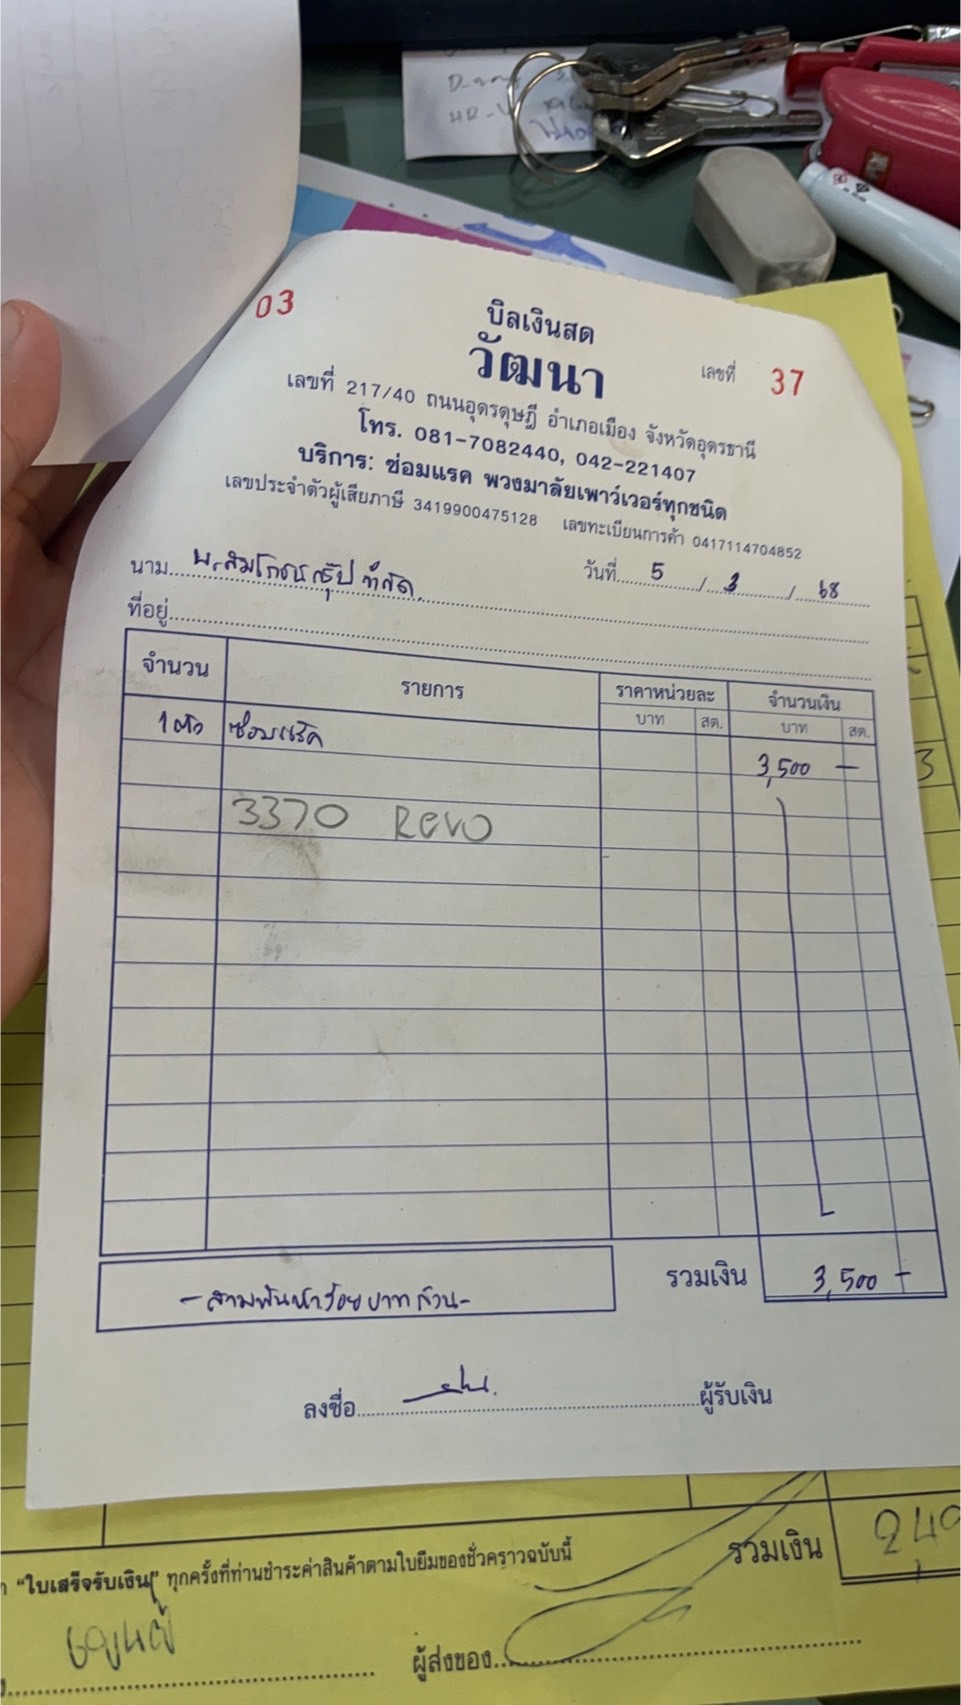 03
บิลเงินสด
วัฒนา
เลขที่ 37
เลขที่ 217/40 ถนนอุดรดุษฎี อำเภอเมือง จังหวัดอุดรธานี
โทร. 081-7082440, 042-221407
บริการ: ซ่อมแรค พวงมาลัยเพาว์เวอร์ทุกชนิด
เลขประจำตัวผู้เสียภาษี 3419900475128 เลขทะเบียนการค้า 0417114704852
นาม
วันที่ 5 / 3 / 68
ที่อยู่
จำนวน รายการ ราคาหน่วยละ จำนวนเงิน
บาท สต. บาท สต.
1 ตัว ซ่อมแร็ค 3,500 -
3370 Revo
รวมเงิน 3,500 -
- สามพันห้าร้อยบาทถ้วน -
ลงชื่อ ผู้รับเงิน
รวมเงิน
"ใบเสร็จรับเงิน" ทุกครั้งที่ท่านชำระค่าสินค้าตามใบยืมของชั่วคราวฉบับนี้
ผู้ส่งของ